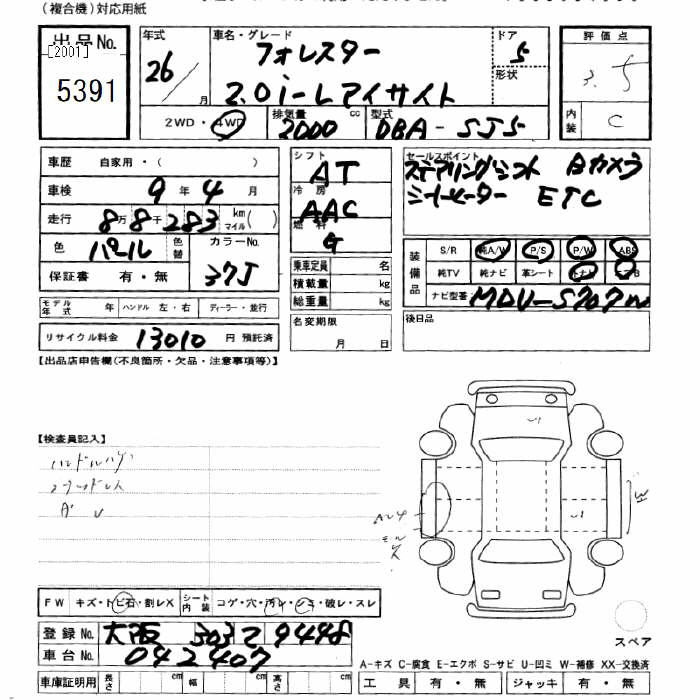 (複合機)対応用紙
出品No.
[2001]
5391
年式 26 / 月
車名・グレード フォレスター
2.0i-L アイサイト
ドア 5
形状
評価点 3.5
内装 C
2WD・4WD
排気量 2000 cc
型式 DBA-SJ5
車歴 自家用・( )
車検 9年 4月
走行 8万8千283 km マイル( )
色 パール 色替
カラーNo. 37J
保証書 有・無
モデル年式 年 ハンドル 左・右 ディーラー・並行
リサイクル料金 13010 円 預託済
シフト AT
冷房 AAC
燃料 G
乗車定員 名
積載量 kg
総重量 kg
名変期限 月 日
セールスポイント
ステアリングシフト Bカメラ
シートヒーター ETC
装備品
S/R 純A/W P/S P/W ABS
純TV 純ナビ 革シート
ナビ型番 MDV-S707W
後日品
【出品店申告欄(不良箇所・欠品・注意事項等)】
【検査員記入】
ハンドルハゲ
FW キズ・トビ石・割レX
シート内装 コゲ・穴・汚レ・シミ・破レ・スレ
登録No. 大阪 303 て 9448
車台No. 042407
車庫証明用 長さ cm 幅 cm 高さ cm
スペア
A-キズ C-腐食 E-エクボ S-サビ U-凹ミ W-補修 XX-交換済
工具 有・無 ジャッキ 有・無